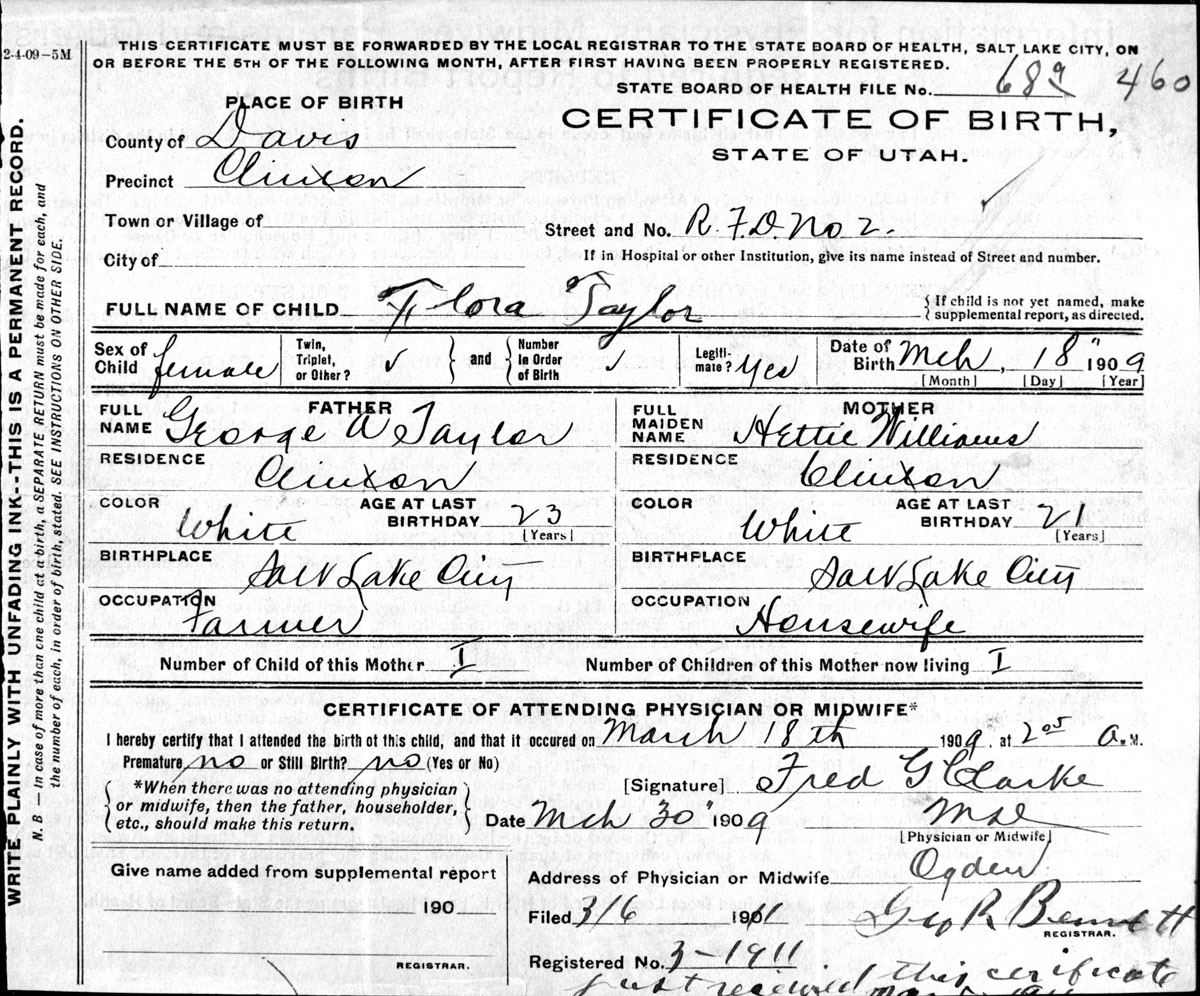 2-4-09—5M
THIS CERTIFICATE MUST BE FORWARDED BY THE LOCAL REGISTRAR TO THE STATE BOARD OF HEALTH, SALT LAKE CITY, ON
OR BEFORE THE 5TH OF THE FOLLOWING MONTH, AFTER FIRST HAVING BEEN PROPERLY REGISTERED.
STATE BOARD OF HEALTH FILE No. 689 460
PLACE OF BIRTH
CERTIFICATE OF BIRTH,
STATE OF UTAH.
County of Davis
Precinct Clinton
Town or Village of
Street and No. R.F.D. No 2.
City of
If in Hospital or other Institution, give its name instead of Street and number.
FULL NAME OF CHILD Flora Taylor
{If child is not yet named, make
supplemental report, as directed.
Sex of Child female Twin, Triplet, or Other? ✓ } and { Number in Order of Birth ✓ Legiti-mate? Yes Date of Birth Mch. 18" 1909
[Month] [Day] [Year]
FATHER MOTHER
FULL NAME George A Taylor FULL MAIDEN NAME Hettie Williams
RESIDENCE Clinton RESIDENCE Clinton
COLOR White AGE AT LAST BIRTHDAY 23 [Years] COLOR White AGE AT LAST BIRTHDAY 21 [Years]
BIRTHPLACE Salt Lake City BIRTHPLACE Salt Lake City
OCCUPATION Farmer OCCUPATION Housewife
Number of Child of this Mother I Number of Children of this Mother now living I
CERTIFICATE OF ATTENDING PHYSICIAN OR MIDWIFE*
I hereby certify that I attended the birth of this child, and that it occured on March 18th 1909. at 2 05 a.M.
Premature no or Still Birth? no (Yes or No)
[Signature] Fred G Clarke
{*When there was no attending physician
or midwife, then the father, householder,
etc., should make this return.}
Date Mch 30" 1909
[Physician or Midwife]
Give name added from supplemental report
Address of Physician or Midwife Ogden
190
Filed 3/6 1901 Geo R Bennett
REGISTRAR.
Registered No. 3-1911
REGISTRAR.
just received this certificate
WRITE PLAINLY WITH UNFADING INK--THIS IS A PERMANENT RECORD.
N. B — In case of more than one child at a birth, a SEPARATE RETURN must be made for each, and
the number of each, in order of birth, stated. SEE INSTRUCTIONS ON OTHER SIDE.